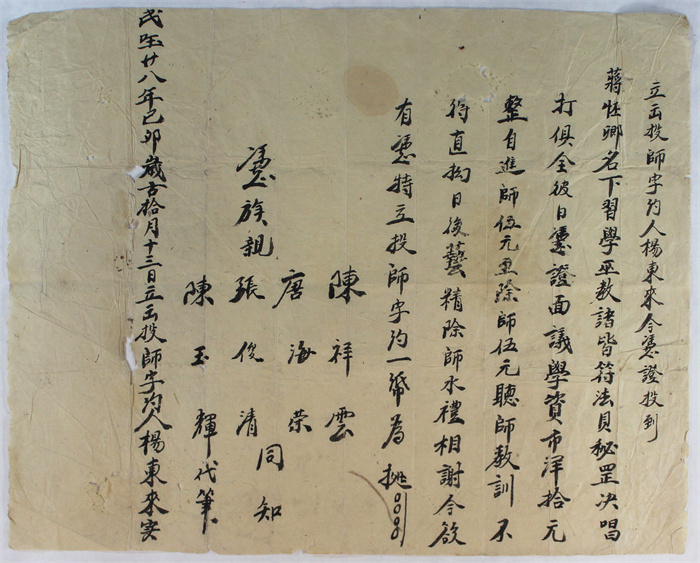 立出投師字約人楊東來今憑證投到
蔣性卿名下習學巫教諸皆符法員秘罡决唱
打俱全彼日憑證面議學資市洋拾元
整自進師伍元出除師伍元聽師教訓不
得直拗日後藝精除師水禮相謝今欲
有憑特立投師字約一帋為
陳祥雲
唐海荣
憑族親張俊清同知
陳玉輝代筆
民国廿八年己卯歲古拾月十三日立出投師字約人楊東來